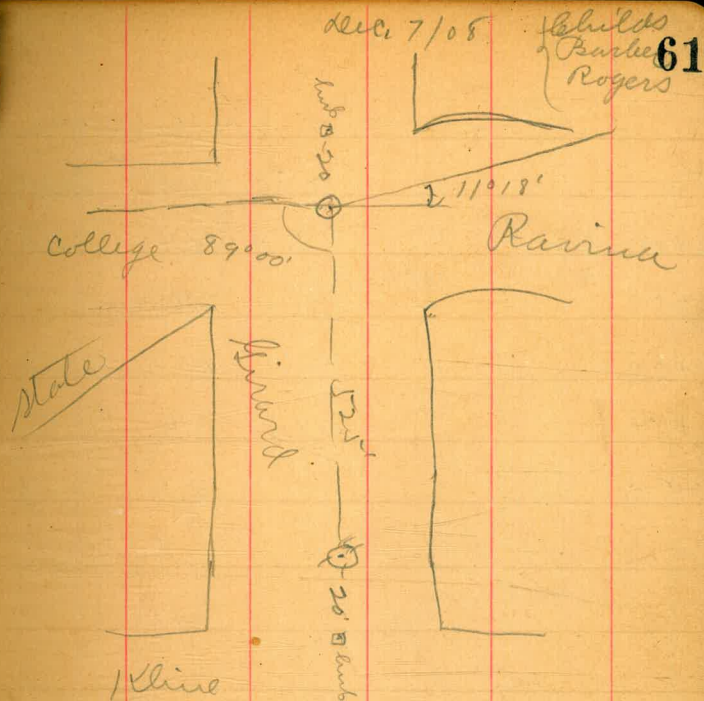 Dec. 7/08
Childs
Barber
Rogers
61
hub 20'
11°18'
College 89°00'
Ravina
State
Girard
525'
20' hub
Kline